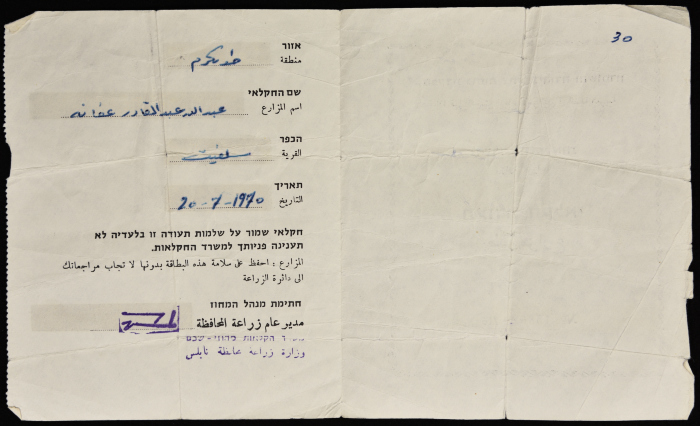 30
אזור
منطقة طولكرم
שם החקלאי
اسم المزارع عبدالله عبدالقادر عفانه
הכפר
القرية سلفيت
תאריך
التاريخ 20-7-1970
חקלאי שמור על שלמות תעודה זו בלעדיה לא
תענינה פניותך למשרד החקלאות.
المزارع : احفظ على سلامة هذه البطاقة بدونها لا تجاب مراجعاتك
الى دائرة الزراعة
חתימת מנהל המחוז
مدير عام زراعة المحافظة
משרד החקלאות מחוז - שכם
وزارة زراعة محافظة نابلس